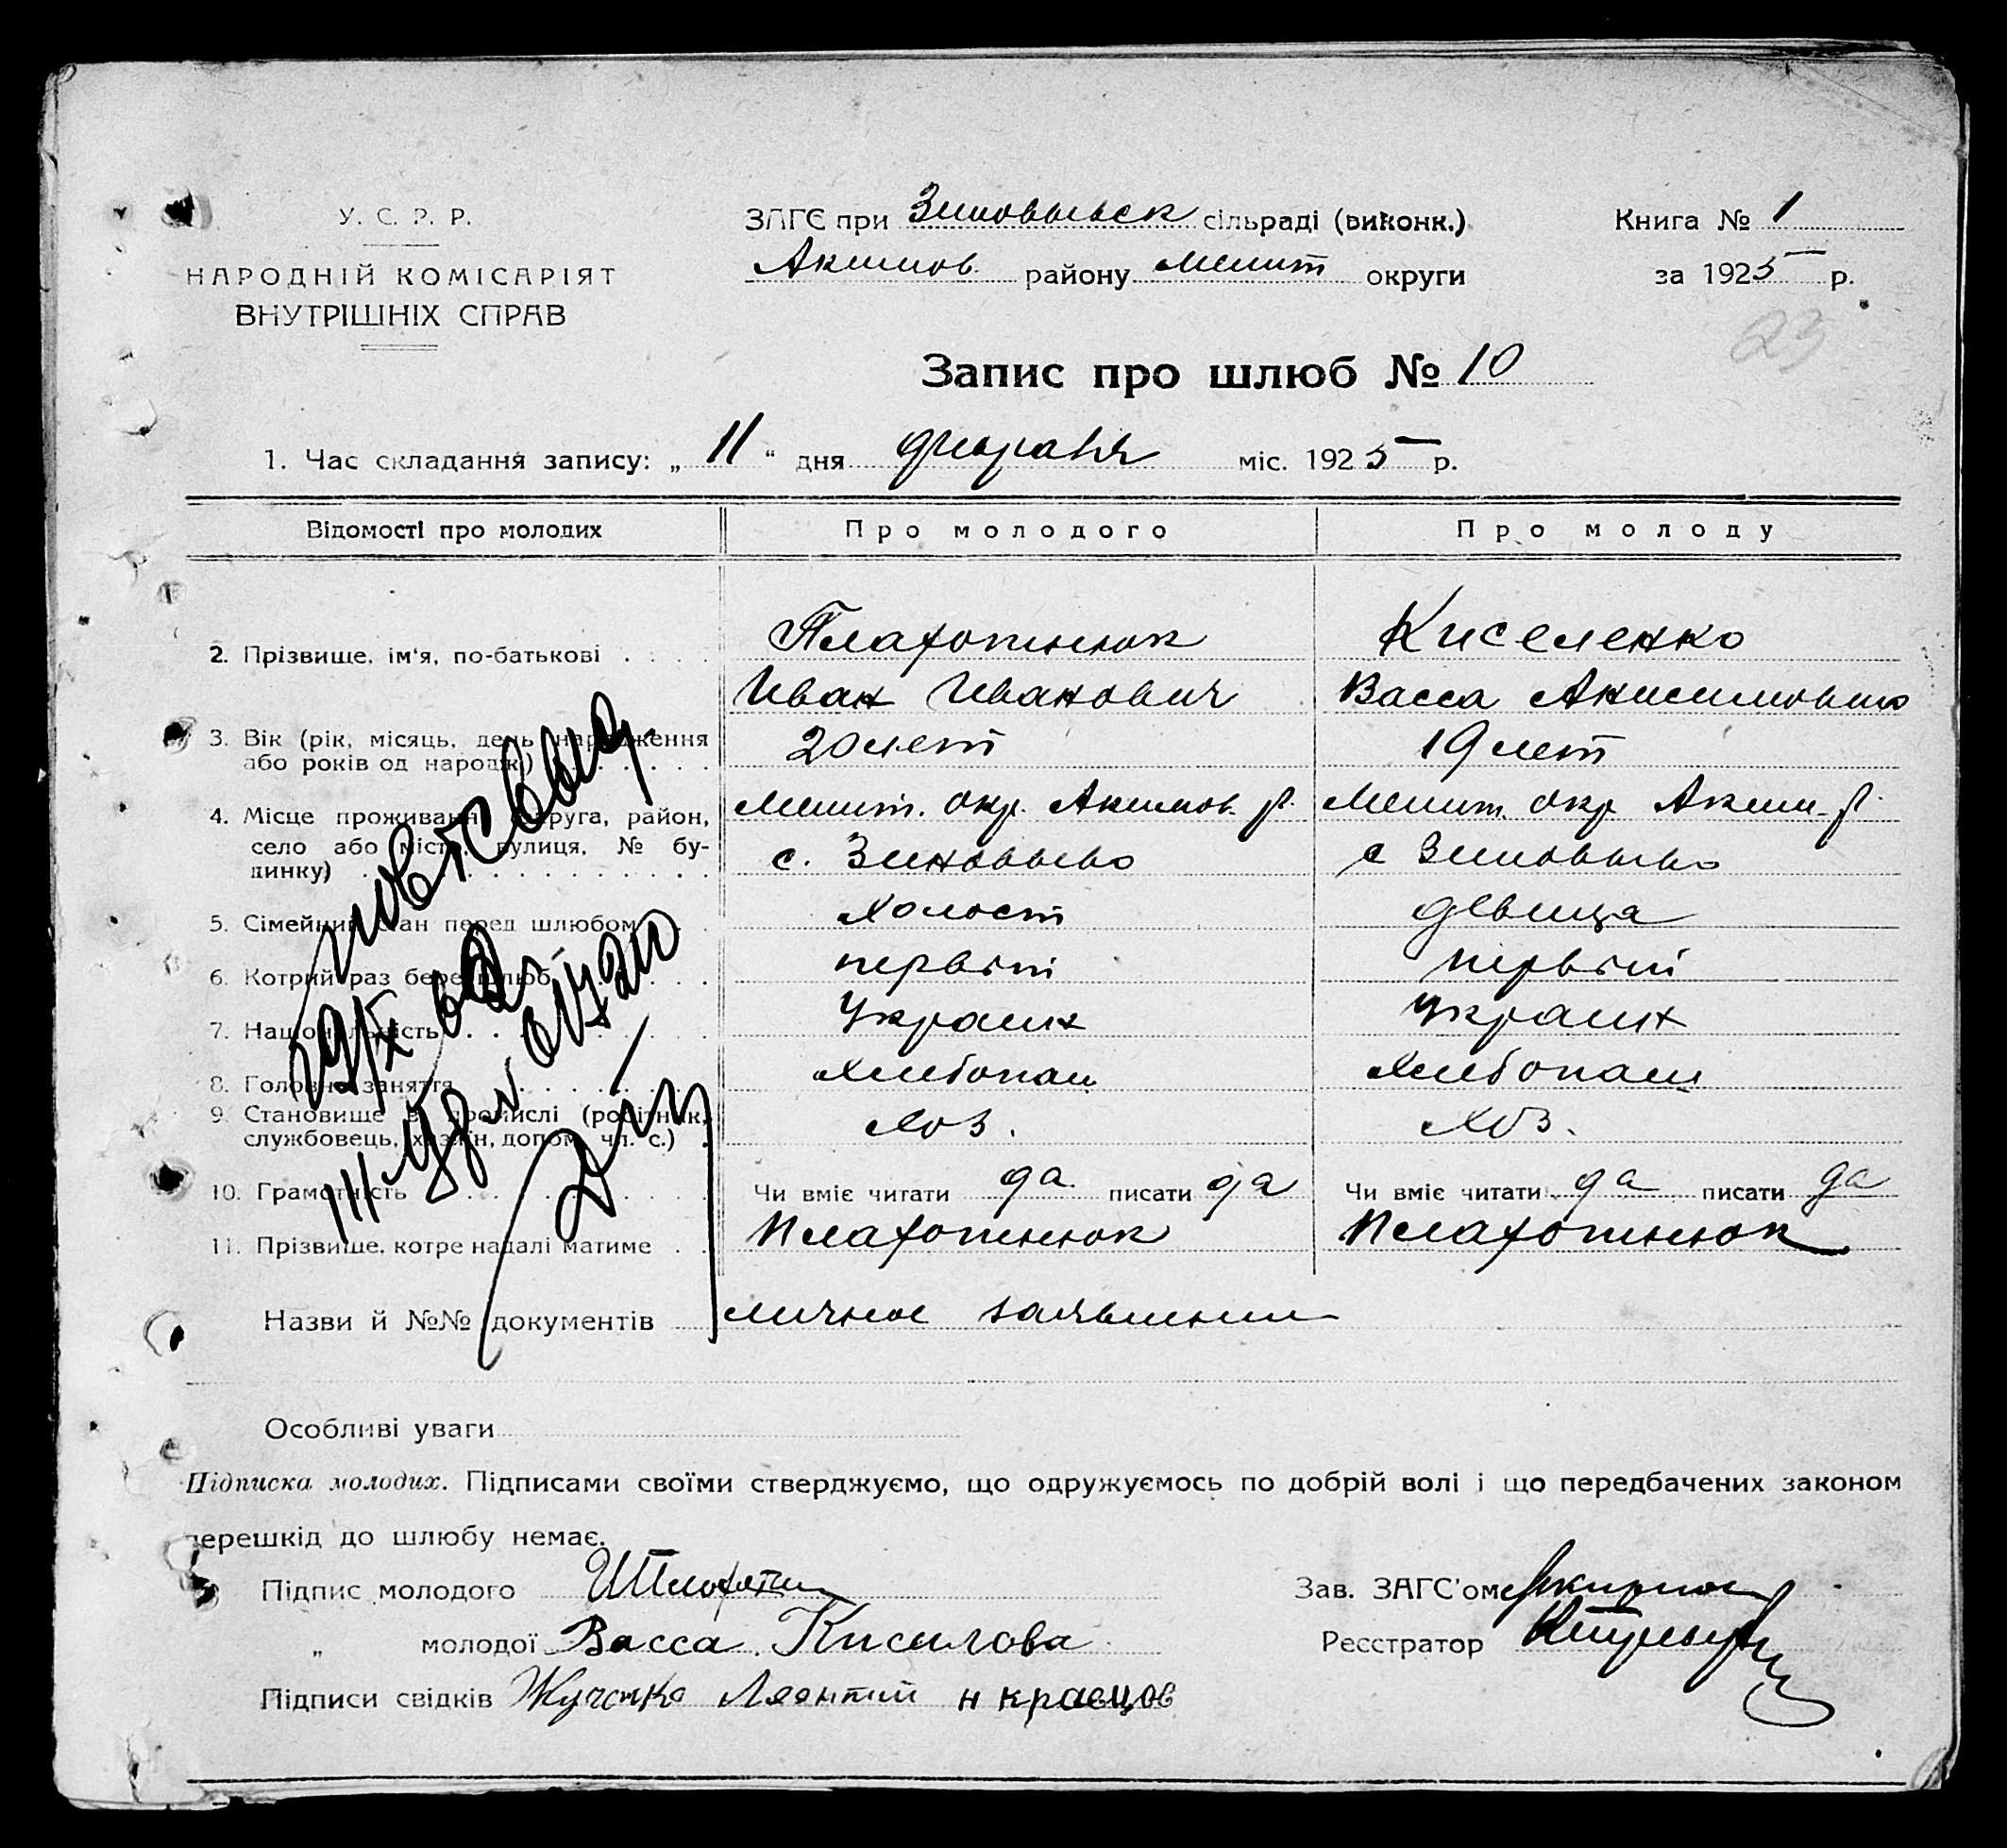 У. С. Р. Р.
НАРОДНІЙ КОМІСАРІЯТ
ВНУТРІШНІХ СПРАВ
ЗАГС при Зиновьевск сільраді (виконк.)
Акимов. району Мелит округи
Книга № 1
за 1925 р.
23
Запис про шлюб № 10
1. Час складання запису: „ 11 “ дня февраля міс. 1925 р.
Відомості про молодих Про молодого Про молоду
2. Прізвище, ім‘я, по-батькові Плахотнюк Киселенко
Иван Иванович Васса
3. Вік (рік, місяць, день народження 20 лет 19 лет
або років од народж.)
4. Місце проживання (округа, район, Мелит. окр. Акимов. р. Мелит. окр Аким. р.
село або місто, вулиця, № бу- с. Зиновьево с Зиновьево
динку)
5. Сімейний стан перед шлюбом холост девица
6. Котрий раз бере шлюб первый первый
7. Національність Украин Украин
8. Головне заняття Хлебопаш Хлебопаш
9. Становище в промислі (робітник, Хоз. Хоз.
службовець, хазяїн, допом. чл. с.)
10. Грамотність Чи вміє читати да писати да Чи вміє читати да писати да
11. Прізвище, котре надалі матиме Плахотнюк Плахотнюк
Назви й №№ документів личное заявление
Особливі уваги
Підписка молодих. Підписами своїми стверджуємо, що одружуємось по добрій волі і що передбачених законом
перешкід до шлюбу немає.
Підпис молодого Зав. ЗАГС'ом
„ молодої Васса Киселова Реєстратор
Підписи свідків Жученко Леонтий Н кравцов